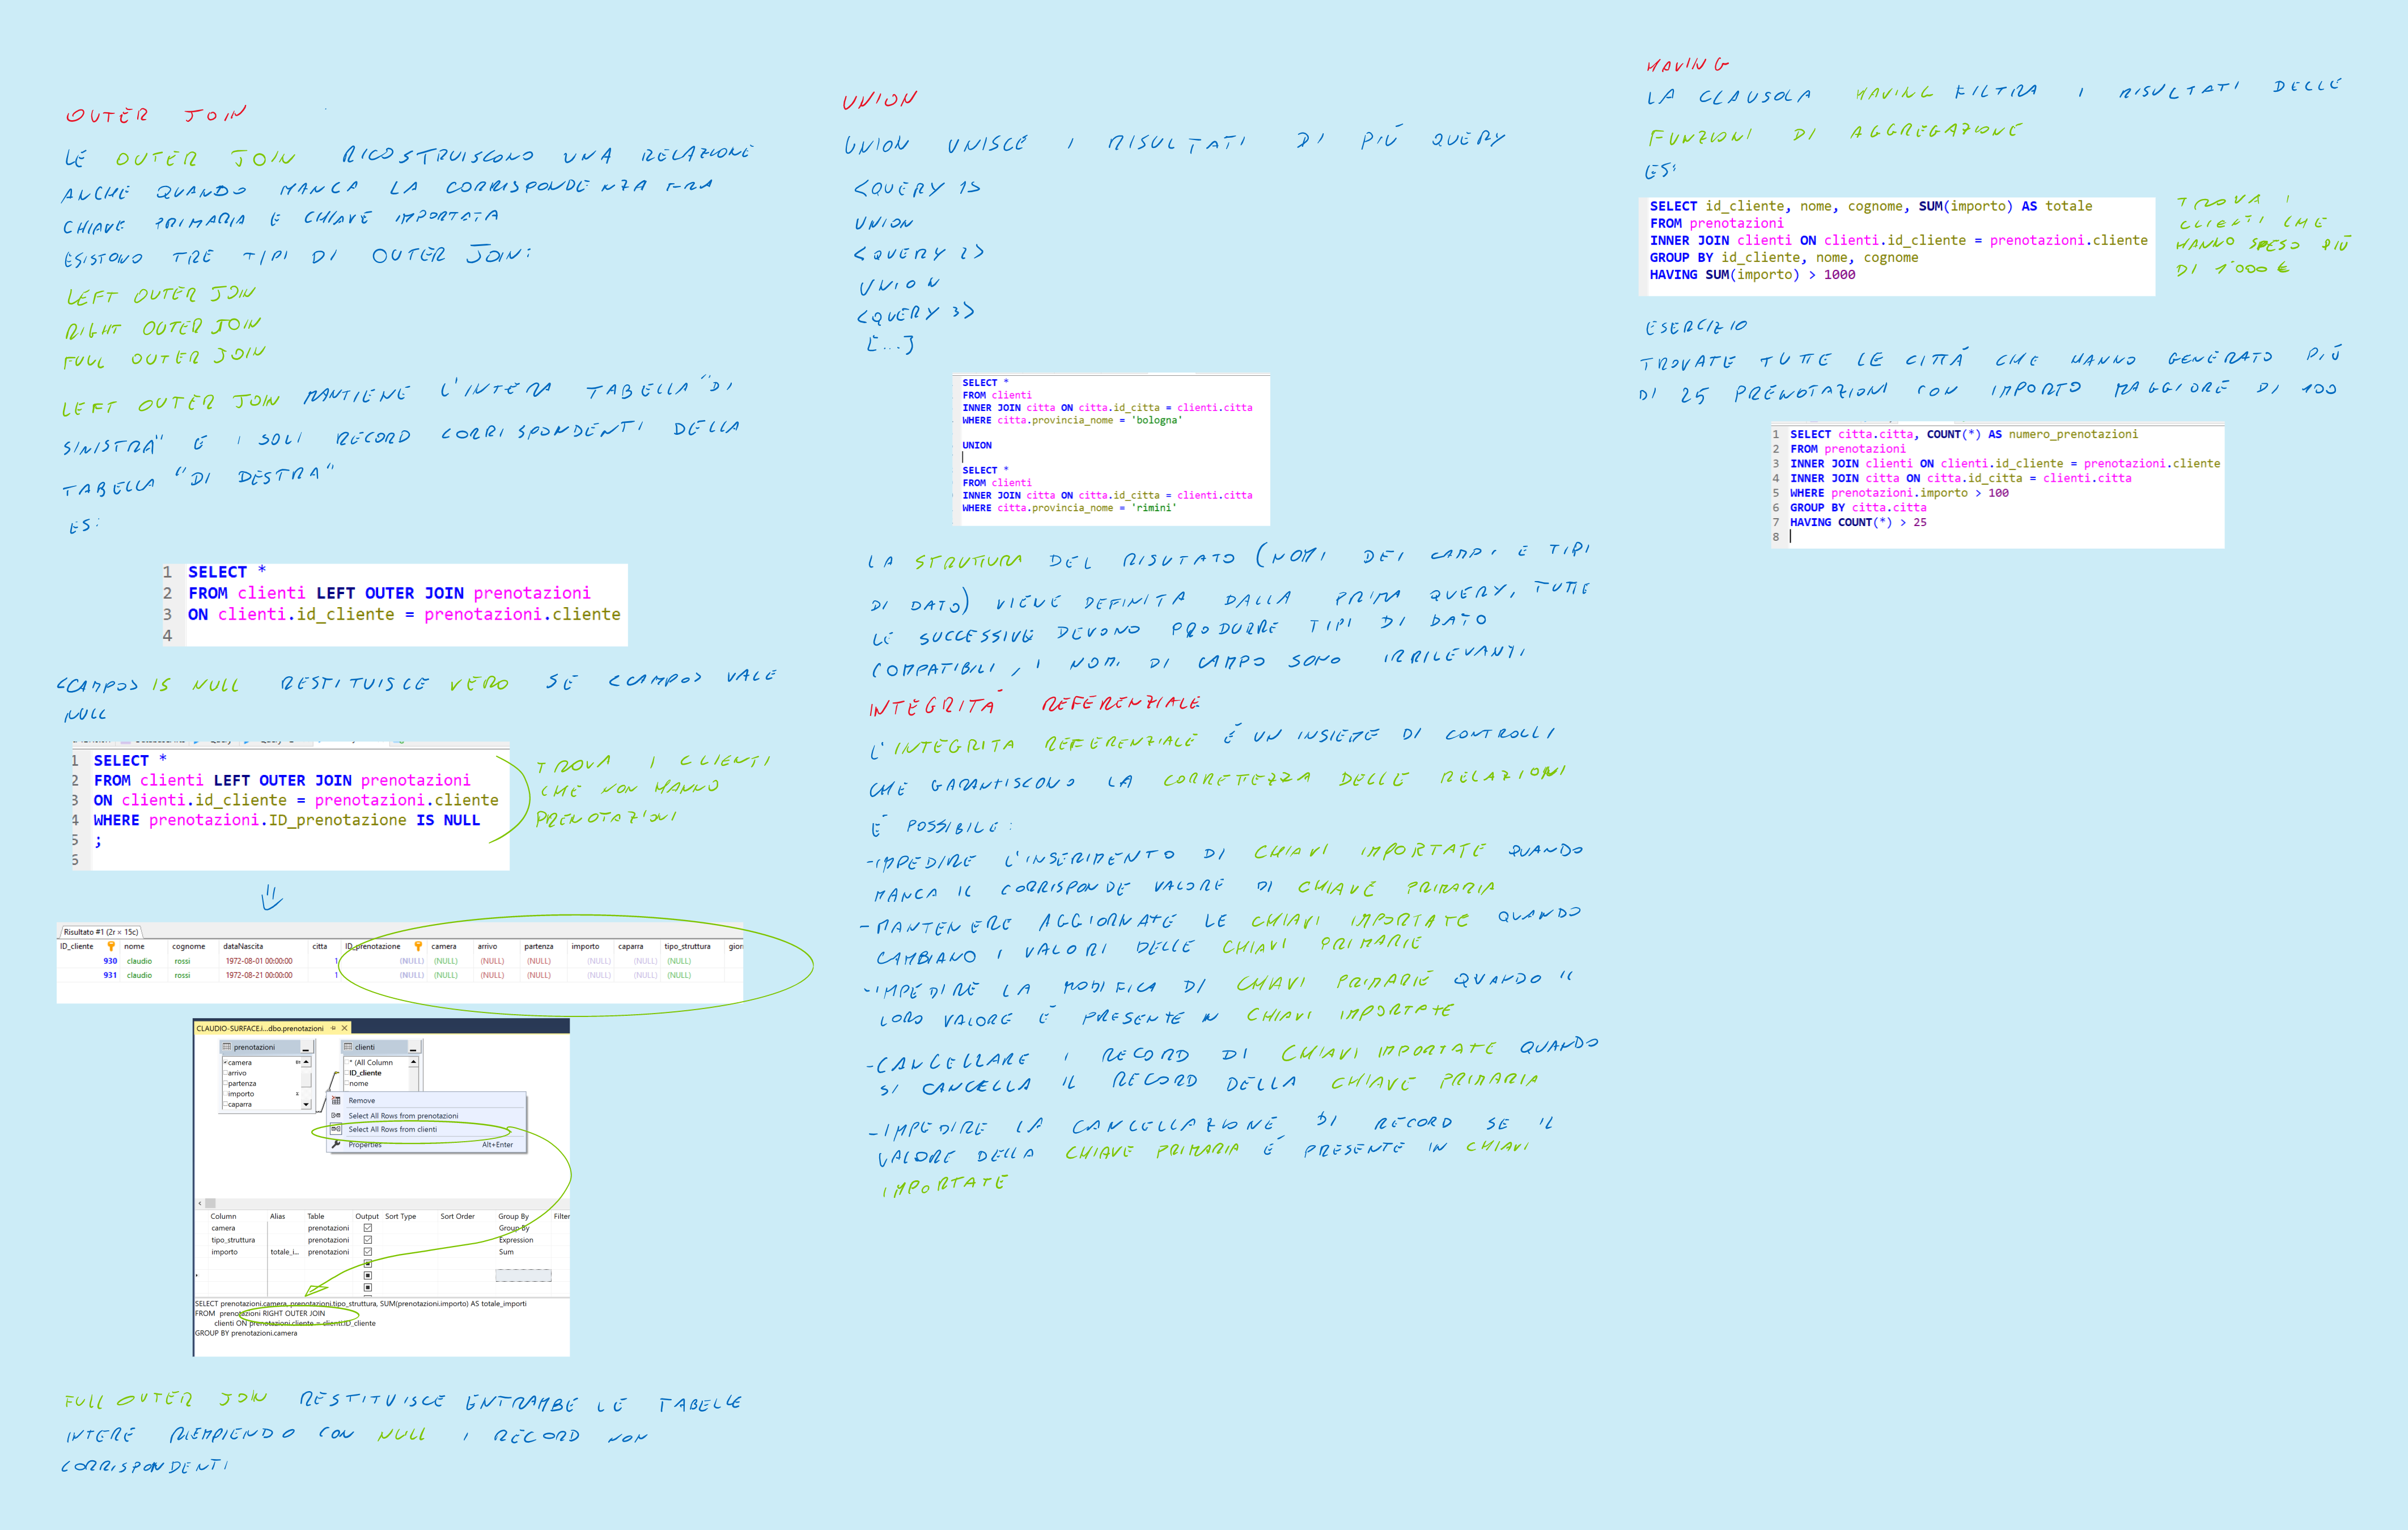 OUTER JOIN
LE OUTER JOIN RICOSTRUISCONO UNA RELAZIONE
ANCHE QUANDO MANCA LA CORRISPONDENZA FRA
CHIAVE PRIMARIA E CHIAVE IMPORTATA
ESISTONO TRE TIPI DI OUTER JOIN:
LEFT OUTER JOIN
RIGHT OUTER JOIN
FULL OUTER JOIN
LEFT OUTER JOIN MANTIENE L'INTERA TABELLA "DI
SINISTRA" E I SOLI RECORD CORRISPONDENTI DELLA
TABELLA "DI DESTRA"
ES:
1 SELECT *
2 FROM clienti LEFT OUTER JOIN prenotazioni
3 ON clienti.id_cliente = prenotazioni.cliente
4
<CAMPO> IS NULL RESTITUISCE VERO SE <CAMPO> VALE
NULL
1 SELECT *
2 FROM clienti LEFT OUTER JOIN prenotazioni
3 ON clienti.id_cliente = prenotazioni.cliente
4 WHERE prenotazioni.ID_prenotazione IS NULL
5 ;
6
TROVA I CLIENTI
CHE NON HANNO
PRENOTAZIONI
Risultato #1 (2r × 15c)
ID_cliente nome cognome dataNascita citta ID_prenotazione camera arrivo partenza importo caparra tipo_struttura gior
930 claudio rossi 1972-08-01 00:00:00 1 (NULL) (NULL) (NULL) (NULL) (NULL) (NULL) (NULL)
931 claudio rossi 1972-08-21 00:00:00 1 (NULL) (NULL) (NULL) (NULL) (NULL) (NULL) (NULL)
CLAUDIO-SURFACE.i...dbo.prenotazioni
prenotazioni
camera
arrivo
partenza
importo
caparra
clienti
* (All Column
ID_cliente
nome
Remove
Select All Rows from prenotazioni
Select All Rows from clienti
Properties Alt+Enter
Column Alias Table Output Sort Type Sort Order Group By Filter
camera prenotazioni Group By
tipo_struttura prenotazioni Expression
importo totale_i... prenotazioni Sum
SELECT prenotazioni.camera, prenotazioni.tipo_struttura, SUM(prenotazioni.importo) AS totale_importi
FROM prenotazioni RIGHT OUTER JOIN
clienti ON prenotazioni.cliente = clienti.ID_cliente
GROUP BY prenotazioni.camera
FULL OUTER JOIN RESTITUISCE ENTRAMBE LE TABELLE
INTERE RIEMPIENDO CON NULL I RECORD NON
CORRISPONDENTI
UNION
UNION UNISCE I RISULTATI DI PIÙ QUERY
<QUERY 1>
UNION
<QUERY 2>
UNION
<QUERY 3>
[...]
SELECT *
FROM clienti
INNER JOIN citta ON citta.id_citta = clienti.citta
WHERE citta.provincia_nome = 'bologna'
UNION
SELECT *
FROM clienti
INNER JOIN citta ON citta.id_citta = clienti.citta
WHERE citta.provincia_nome = 'rimini'
LA STRUTURA DEL RISUTATO (NOMI DEI CAMPI E TIPI
DI DATO) VIENE DEFINITA DALLA PRIMA QUERY, TUTTE
LE SUCCESSIVE DEVONO PRODURRE TIPI DI DATO
COMPATIBILI, I NOMI DI CAMPO SONO IRRILEVANTI
INTEGRITÀ REFERENZIALE
L'INTEGRITA REFERENZIALE È UN INSIEME DI CONTROLLI
CHE GARANTISCONO LA CORRETTEZZA DELLE RELAZIONI
È POSSIBILE:
-IMPEDIRE L'INSERIMENTO DI CHIAVI IMPORTATE QUANDO
MANCA IL CORRISPONDE VALORE DI CHIAVE PRIMARIA
-MANTENERE AGGIORNATE LE CHIAVI IMPORTATE QUANDO
CAMBIANO I VALORI DELLE CHIAVI PRIMARIE
-IMPEDIRE LA MODIFICA DI CHIAVI PRIMARIE QUANDO IL
LORO VALORE È PRESENTE IN CHIAVI IMPORTATE
-CANCELLARE I RECORD DI CHIAVI IMPORTATE QUANDO
SI CANCELLA IL RECORD DELLA CHIAVE PRIMARIA
-IMPEDIRE LA CANCELLAZIONE DI RECORD SE IL
VALORE DELLA CHIAVE PRIMARIA È PRESENTE IN CHIAVI
IMPORTATE
HAVING
LA CLAUSOLA HAVING FILTRA I RISULTATI DELLE
FUNZIONI DI AGGREGAZIONE
ES:
SELECT id_cliente, nome, cognome, SUM(importo) AS totale
FROM prenotazioni
INNER JOIN clienti ON clienti.id_cliente = prenotazioni.cliente
GROUP BY id_cliente, nome, cognome
HAVING SUM(importo) > 1000
TROVA I
CLIENTI CHE
HANNO SPESO PIÙ
DI 1'000 €
ESERCIZIO
TROVATE TUTTE LE CITTÀ CHE HANNO GENERATO PIÙ
DI 25 PRENOTAZIONI CON IMPORTO MAGGIORE DI 100
1 SELECT citta.citta, COUNT(*) AS numero_prenotazioni
2 FROM prenotazioni
3 INNER JOIN clienti ON clienti.id_cliente = prenotazioni.cliente
4 INNER JOIN citta ON citta.id_citta = clienti.citta
5 WHERE prenotazioni.importo > 100
6 GROUP BY citta.citta
7 HAVING COUNT(*) > 25
8